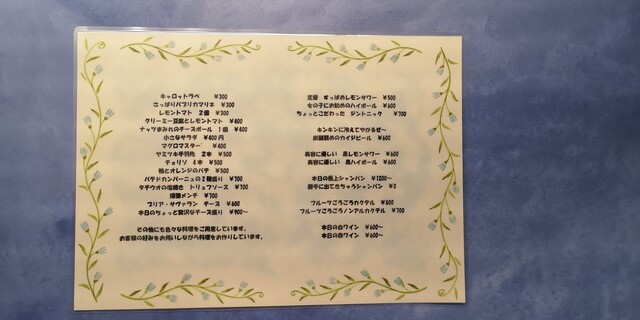 キャロットラペ ¥300
さっぱりパプリカマリネ ¥300
レモントマト 2個 ¥300
クリーミー豆腐とレモントマト ¥400
ナッツまみれのチーズボール 1個 ¥400
小さなサラダ ¥400円
マグロマスター ¥400
ヤミツキ手羽先 2本 ¥500
チョリソ 4本 ¥500
鴨とオレンジのパテ ¥500
パテドカンパーニュの2種盛り ¥700
タチウオの塩焼き トリュフソース ¥700
頑張メンチ ¥700
ブリア・サヴァラン チーズ ¥600
本日のちょっと贅沢なチーズ盛り ¥900~
その他にも色々な料理をご用意しています。
お客様の好みをお伺いしながら料理をお作りしています。
定番 すっぱめレモンサワー ¥500
女の子にお勧めのハイボール ¥600
ちょっとこだわった ジントニック ¥700
キンキンに冷えてやがるぜ~
炭酸強めのカイジビール ¥600
美容に優しい 黒レモンサワー ¥600
美容に優しい 黒ハイボール ¥600
本日の極上シャンパン ¥1200~
勝手に出てきちゃうシャンパン ¥0
フルーツごろごろカクテル ¥800
フルーツごろごろノンアルカクテル ¥700
本日の白ワイン ¥600~
本日の赤ワイン ¥600~